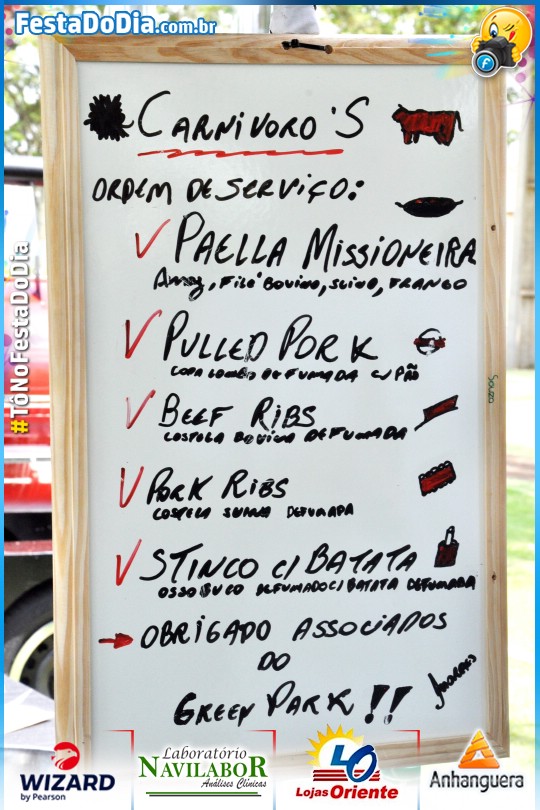 FestaDoDia.com.br
#TôNoFestaDoDia
CARNIVORO'S
ORDEM DE SERVIÇO:
PAELLA MISSIONEIRA
Arroz, FILÉ BOVINO, SUINO, FRANGO
PULLED PORK
COPA LOMBO DEFUMADA C/ PÃO
BEEF RIBS
COSTELA BOVINA DEFUMADA
PORK RIBS
COSTELA SUINA DEFUMADA
STINCO C/ BATATA
OSSOBUCO DEFUMADO C/ BATATA DEFUMADA
OBRIGADO ASSOCIADOS
DO
GREEN PARK!!
SOUZA
WIZARD
by Pearson
Laboratório
NAVILABOR
Análises Clínicas
LO
Lojas Oriente
Anhanguera